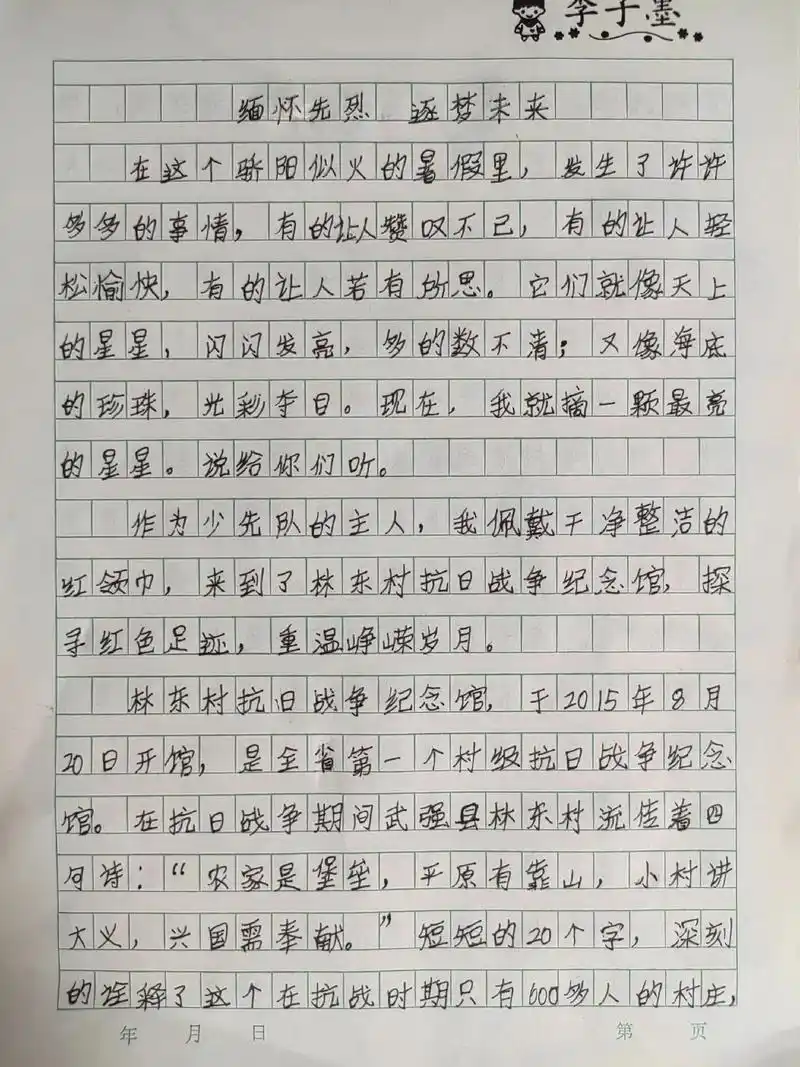 李子墨
缅怀先烈 逐梦未来
在这个骄阳似火的暑假里，发生了许许
多多的事情，有的让人赞叹不已，有的让人轻
松愉快，有的让人若有所思。它们就像天上
的星星，闪闪发亮，多的数不清；又像海底
的珍珠，光彩夺目。现在，我就摘一颗最亮
的星星。说给你们听。
作为少先队的主人，我佩戴干净整洁的
红领巾，来到了林东村抗日战争纪念馆，探
寻红色足迹，重温峥嵘岁月。
林东村抗旧战争纪念馆，于2015年8月
20日开馆，是全省第一个村级抗日战争纪念
馆。在抗日战争期间武强县林东村流传着四
句诗：“农家是堡垒，平原有靠山，小村讲
大义，兴国需奉献。”短短的20个字，深刻
的诠释了这个在抗战时期只有600多人的村庄，
年 月 日 第 页